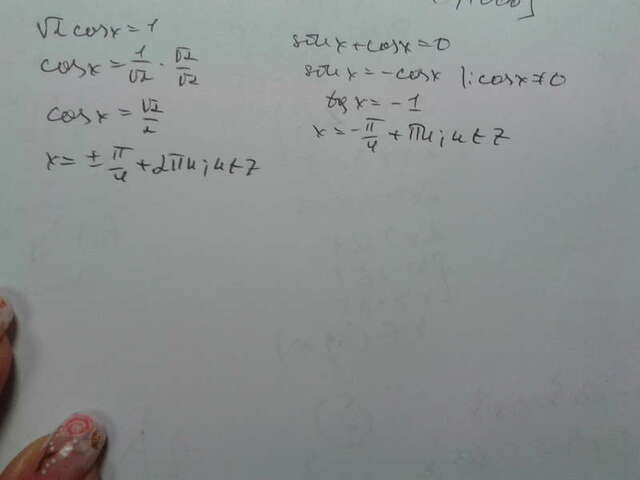 √2 cosx = 1
cosx = 1/√2 · √2/√2
cosx = √2/2
x = ± π/4 + 2πn; n ∈ Z
sinx + cosx = 0
sinx = -cosx |: cosx ≠ 0
tgx = -1
x = -π/4 + πn; n ∈ Z